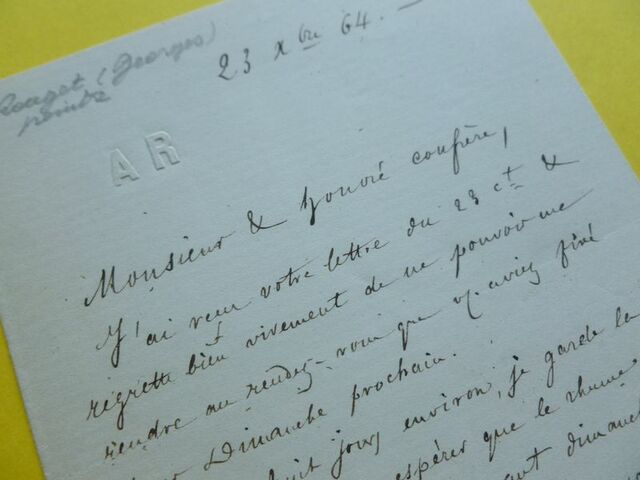 Rouget (Georges)
peintre
23 Xbre 64. —
AR
Monsieur & honoré confrère,
J'ai reçu votre lettre du 23 ct &
régrette bien vivement de ne pouvoir me
rendre au rendez-vous que v. aviez fixé
Dimanche prochain.
huit jours environ, je garde la
espérer que le rhume
dimanche